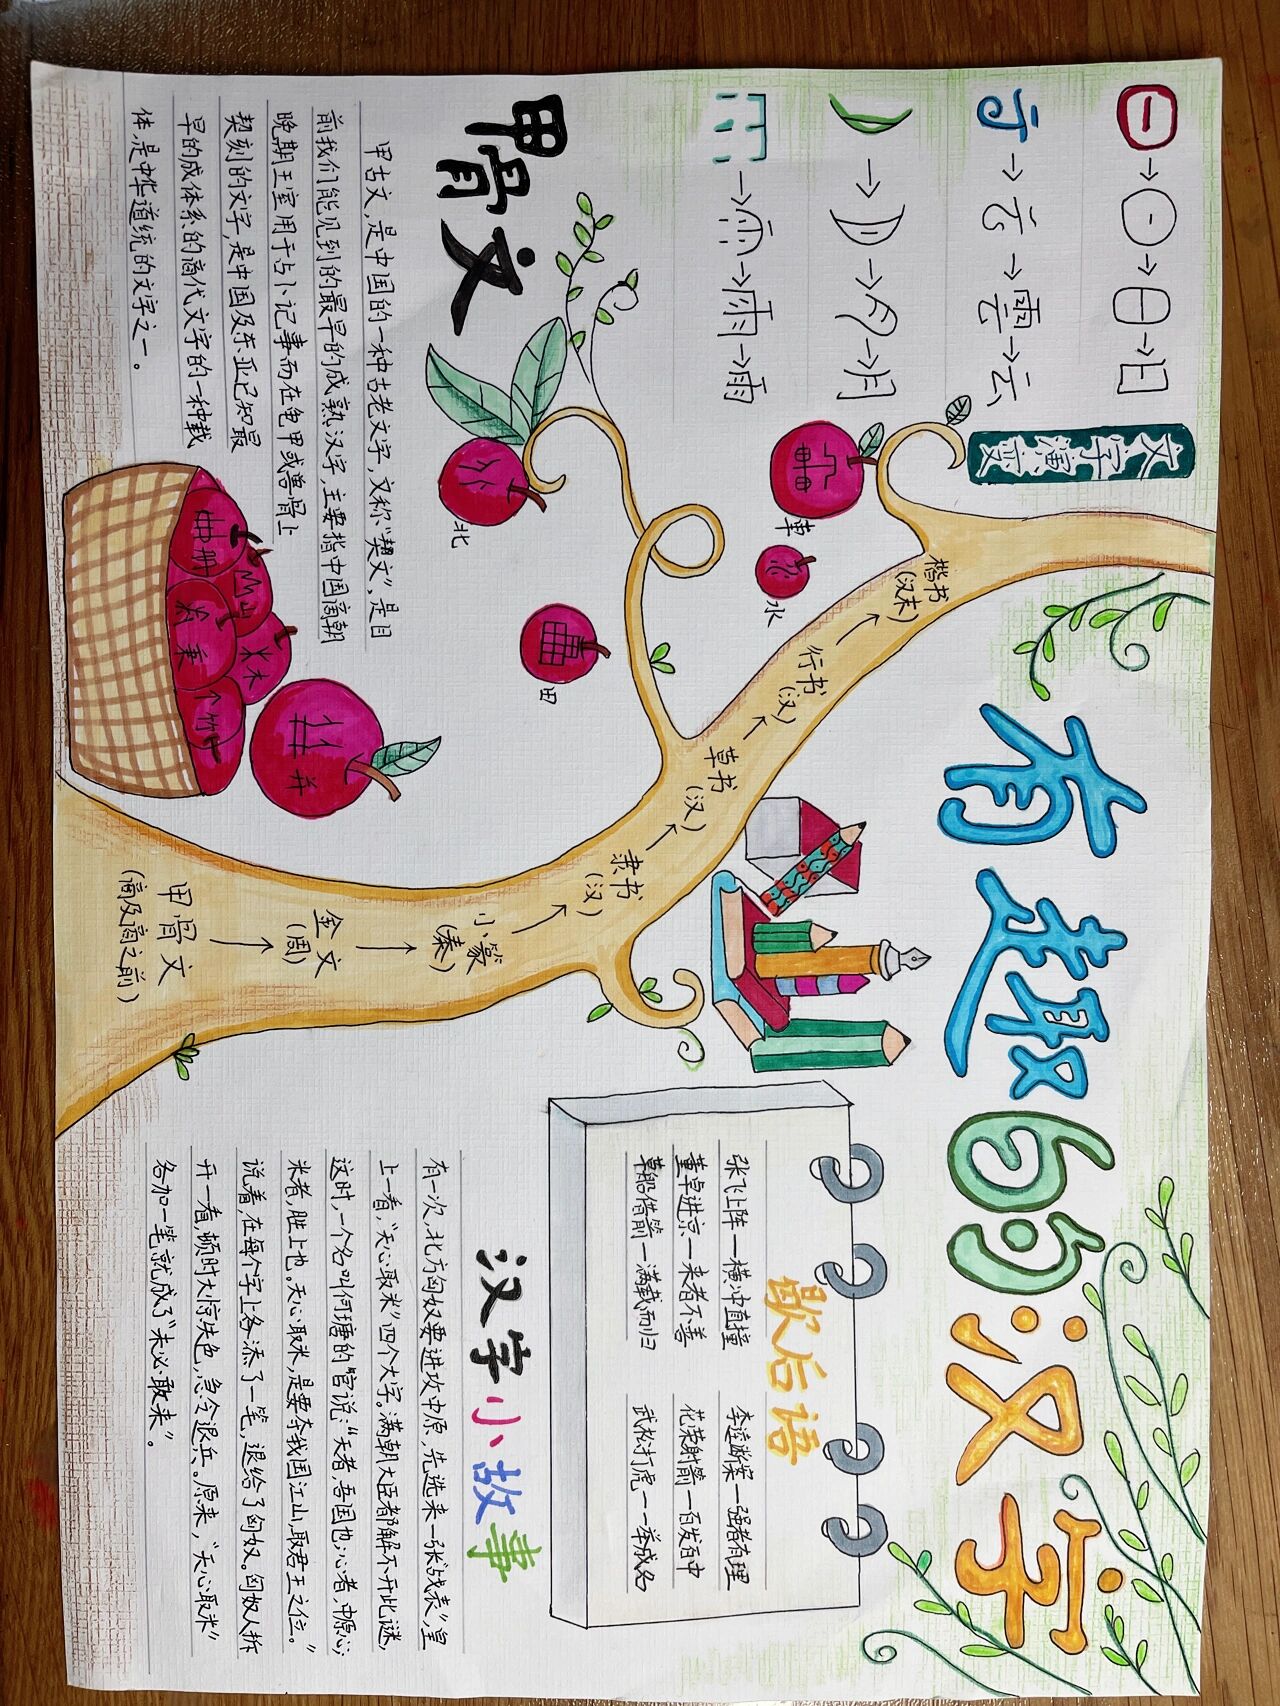 有趣的汉字
文字演变
日
云
云
雲
云
月
雨
雨
車
水
北
田
井
册
山
木
秉
竹
甲骨文
甲古文，是中国的一种古老文字，又称“契文”，是目
前我们能见到的最早的成熟汉字，主要指中国商朝
晚期王室用于占卜记事而在龟甲或兽骨上
契刻的文字，是中国及东亚已知最
早的成体系的商代文字的一种载
体，是中华道统的文字之一。
楷书
（汉末）
行书
（汉）
草书
（汉）
隶书
（汉）
小篆
（秦）
金文
（周）
甲骨文
（商及商之前）
歇后语
张飞上阵一横冲直撞
董卓进京一来者不善
草船借箭一满载而归
李逵断案一强者有理
花荣射箭一百发百中
武松打虎一举成名
汉字小故事
有一次，北方匈奴要进攻中原，先选来一张“战表”，皇
上一看，“天心取米”四个大字。满朝大臣都解不开此谜，
这时，一个名叫何瑭的官说：“天者，吾国也；心者，中原心；
米者，胜上也。天心取米，是要夺我国江山，取君王之位。”
说着，在每个字上各添了一笔，退给了匈奴。匈奴人拆
开一看，顿时大惊失色，急令退兵。原来，“天心取米”
各加一笔就成了“未必敢来”。